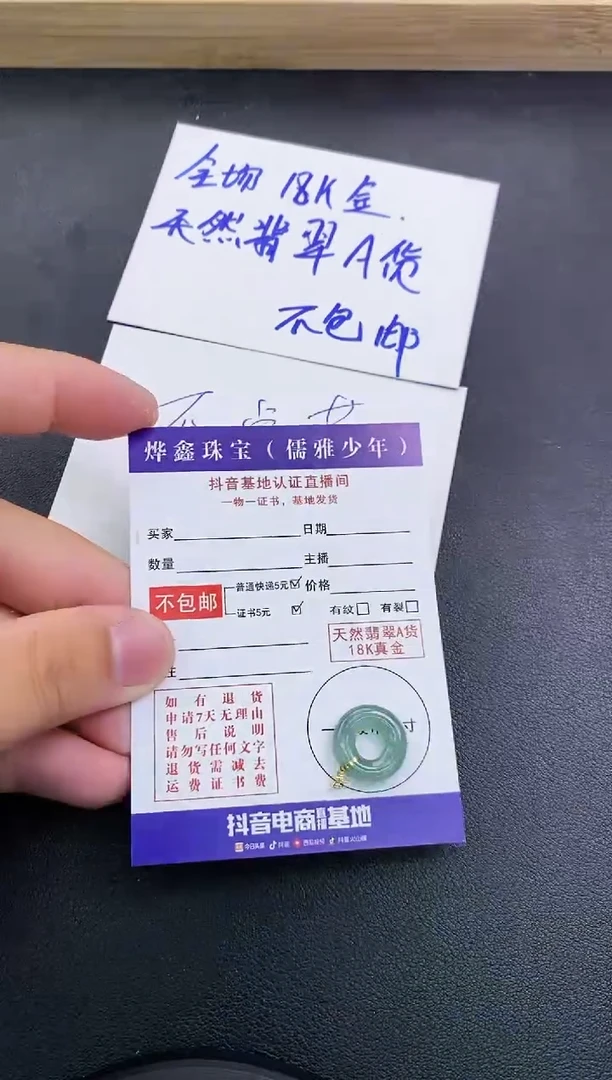 全场 18K金.
天然翡翠A货
不包邮
烨鑫珠宝（儒雅少年）
抖音基地认证直播间
一物一证书，基地发货
买家 日期
数量 主播
不包邮 普通快递5元☑ 价格
证书5元 ☑ 有纹□ 有裂□
天然翡翠A货
18K真金
注
如有退货
申请7天无理由
售后说明
请勿写任何文字
退货需减去
运费证书费
一 寸
抖音电商直播基地
今日头条 抖音 西瓜视频 抖音火山版